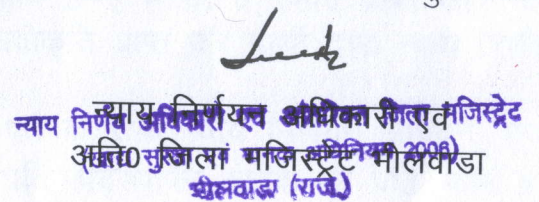 न्याय निर्णयन अधिकारी एवं
अति0 जिला मजिस्ट्रेट भीलवाड़ा
न्याय निर्णय अधिकारी एवं अतिरिक्त जिला मजिस्ट्रेट
(खाद्य सुरक्षा एवं मानक अधिनियम 2006)
भीलवाडा (राज.)